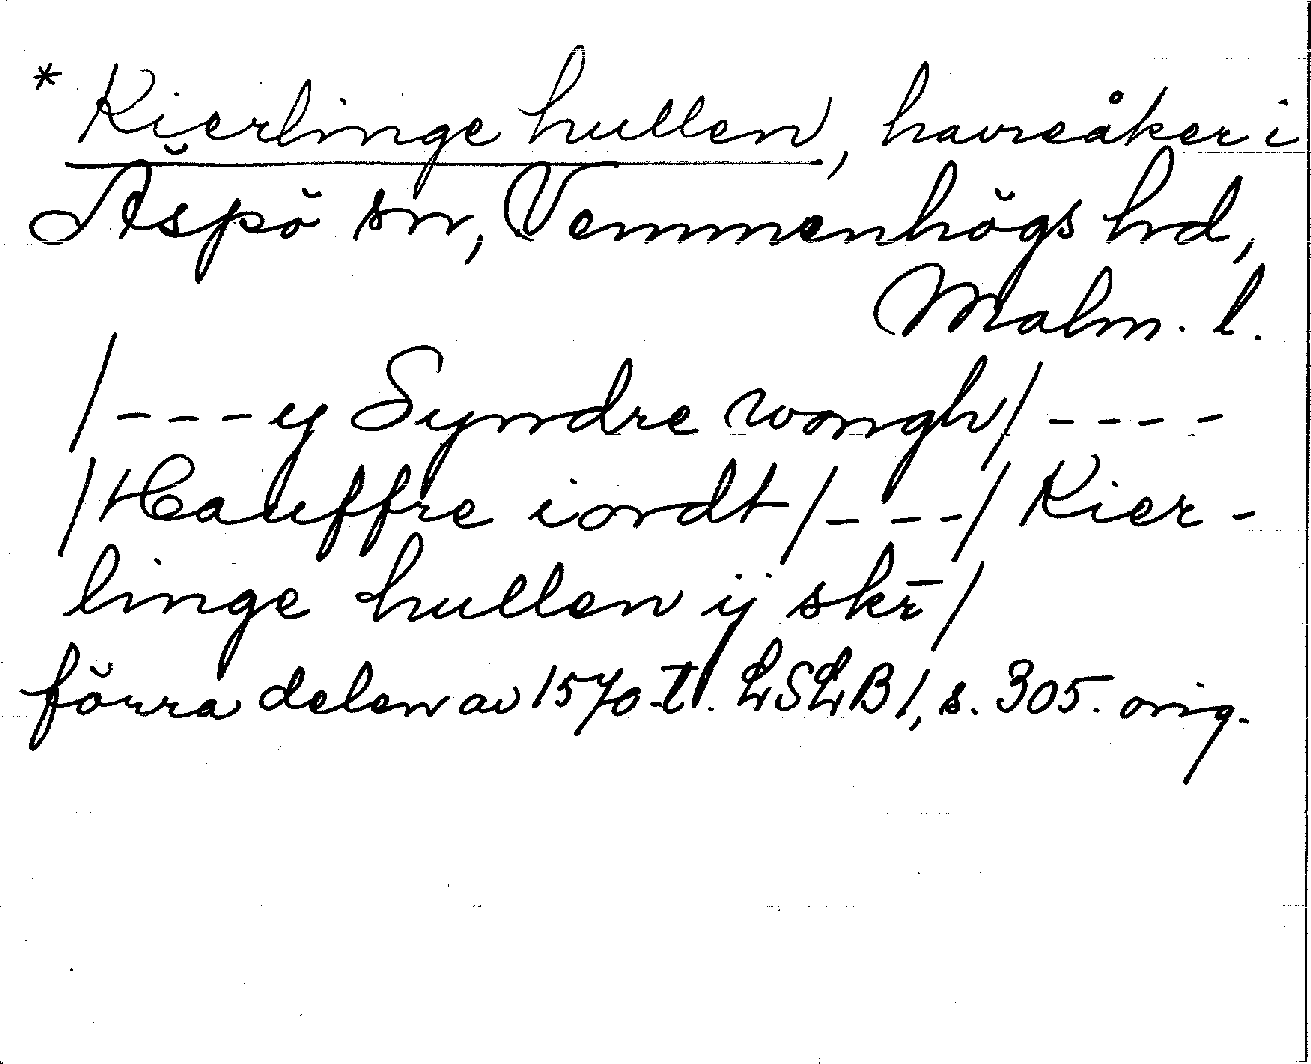 * Kierlinge hullen, havreåker i
Äspö sn, Vemmenhögs hd,
Malm. l.
/---ij Syndre wongh/----
/Hauffre iordt/----/ Kier-
linge hullen ij skr̄/
förra delen av 1570-t. LSLB 1, s. 305. orig.